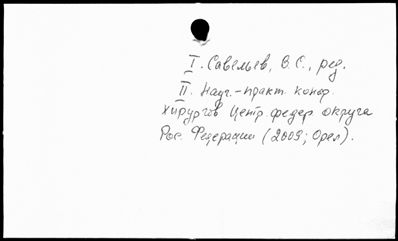 I. Савельев, В.С., ред.
II. Науч.-практ. конф.
хирургов Центр. федер. округа
Рос. Федерации (2009; Орел).